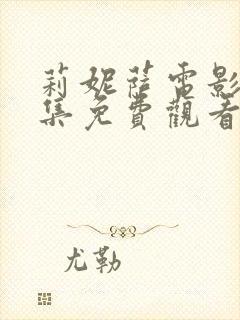 莉妮薩電影
集免費觀看
尤勒